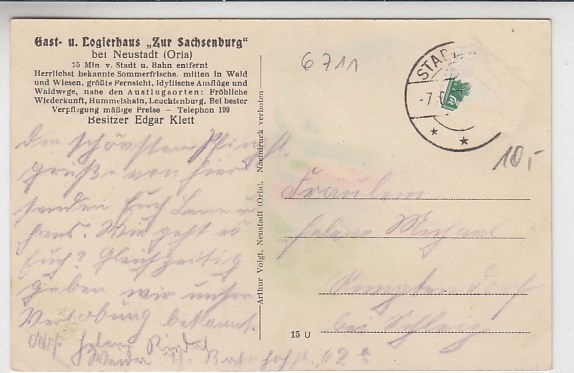 Gast- u. Logierhaus „Zur Sachsenburg"
bei Neustadt (Orla)
35 Min v. Stadt u. Bahn entfernt
Herrlichst bekannte Sommerfrische, mitten in Wald
und Wiesen, größte Fernsicht, idyllische Ausflüge und
Waldwege, nahe den Ausflugsorten: Fröhliche
Wiederkunft, Hummelshain, Leuchtenburg. Bei bester
Verpflegung mäßige Preise — Telephon 199
Besitzer Edgar Klett
Die schönsten Pfingst
grüße von hier
senden Euch
Hans. Wie geht es
Euch? Gleichzeitig
geben wir unsere
Verlobung bekannt.
Abs.
Weida Bahnhofstr. 42
Arthur Voigt, Neustadt (Orla). Nachdruck verboten
15 U
6711
STAD
-7.
10,-
Fräulein
Helene
bei Schleiz